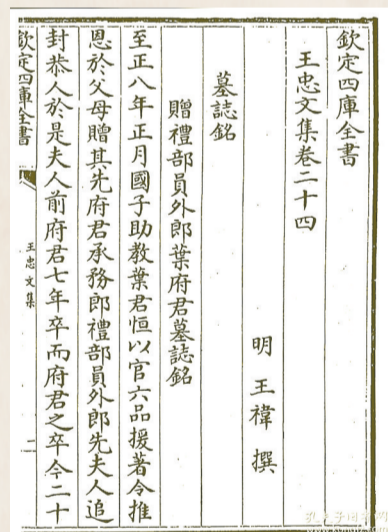 欽定四庫全書
王忠文集卷二十四
明 王禕 撰
墓誌銘
贈禮部員外郎葉府君墓誌銘
至正八年正月國子助教葉君恒以官六品援著令推
恩於父母贈其先府君承務郎禮部員外郎先夫人追
封恭人於是夫人前府君七年卒而府君之卒今二十
欽定四庫全書
王忠文集
一